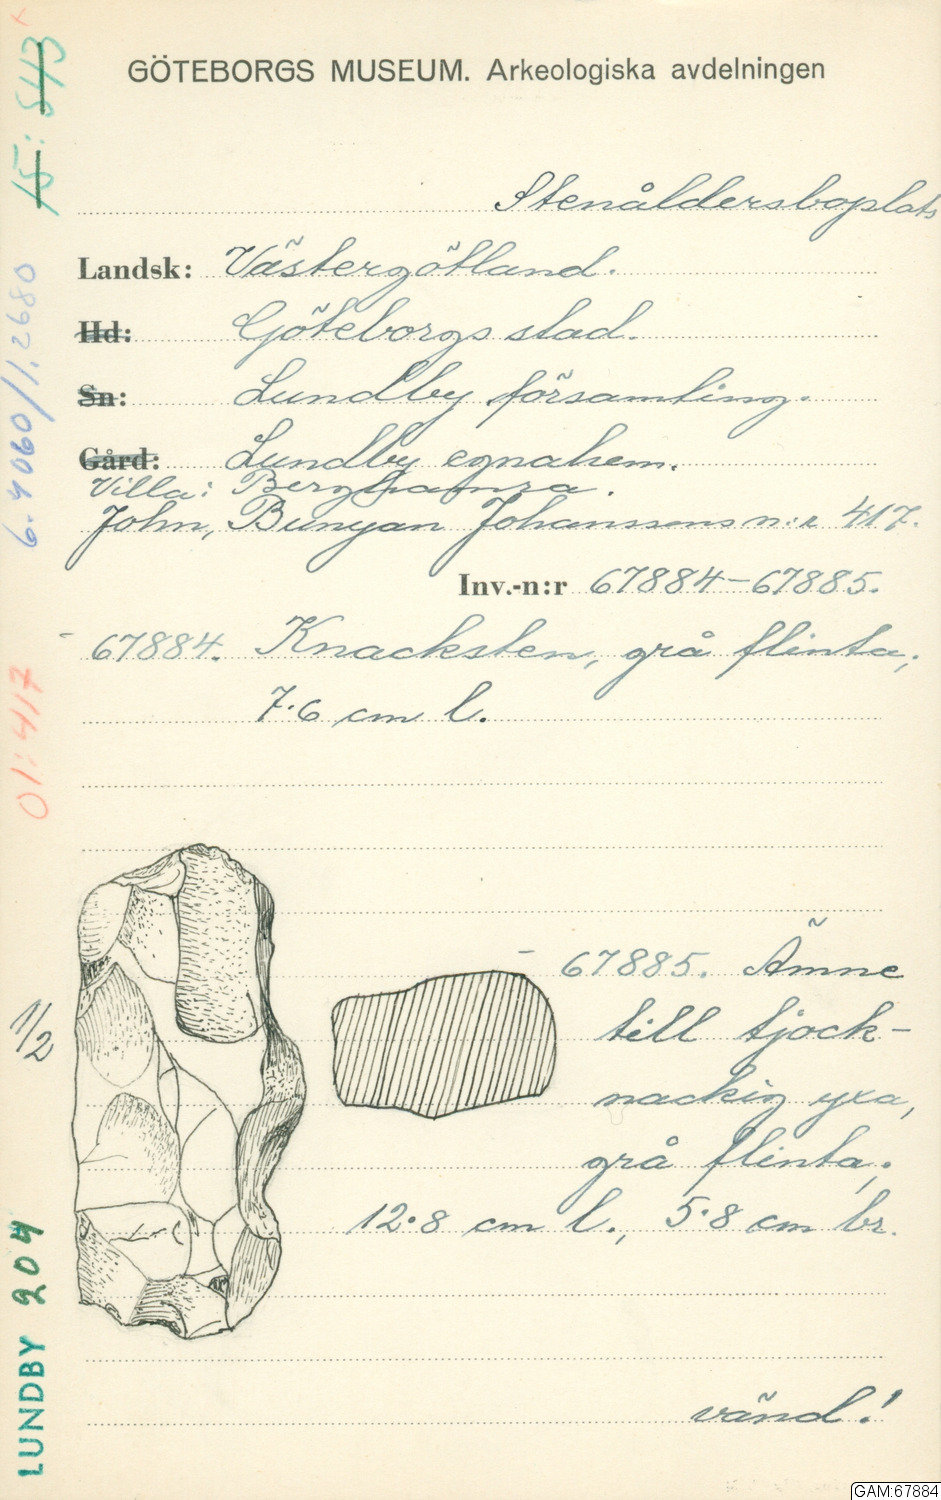 GÖTEBORGS MUSEUM. Arkeologiska avdelningen
Stenåldersboplats
Landsk: Västergötland.
Hd: Göteborgs stad.
Sn: Lundby församling.
Gård: Lundby egnahem.
Villa: Berghamra.
John, Bunyan Johanssons n:r 417.
Inv.-n:r 67884–67885.
67884. Knacksten, grå flinta;
7.6 cm l.
67885. Ämne
till tjock-
nackig yxa,
grå flinta;
12.8 cm l., 5.8 cm br.
vänd!
1/2
15:543
6.4060/1.2680
01:417
LUNDBY 204
GAM:67884